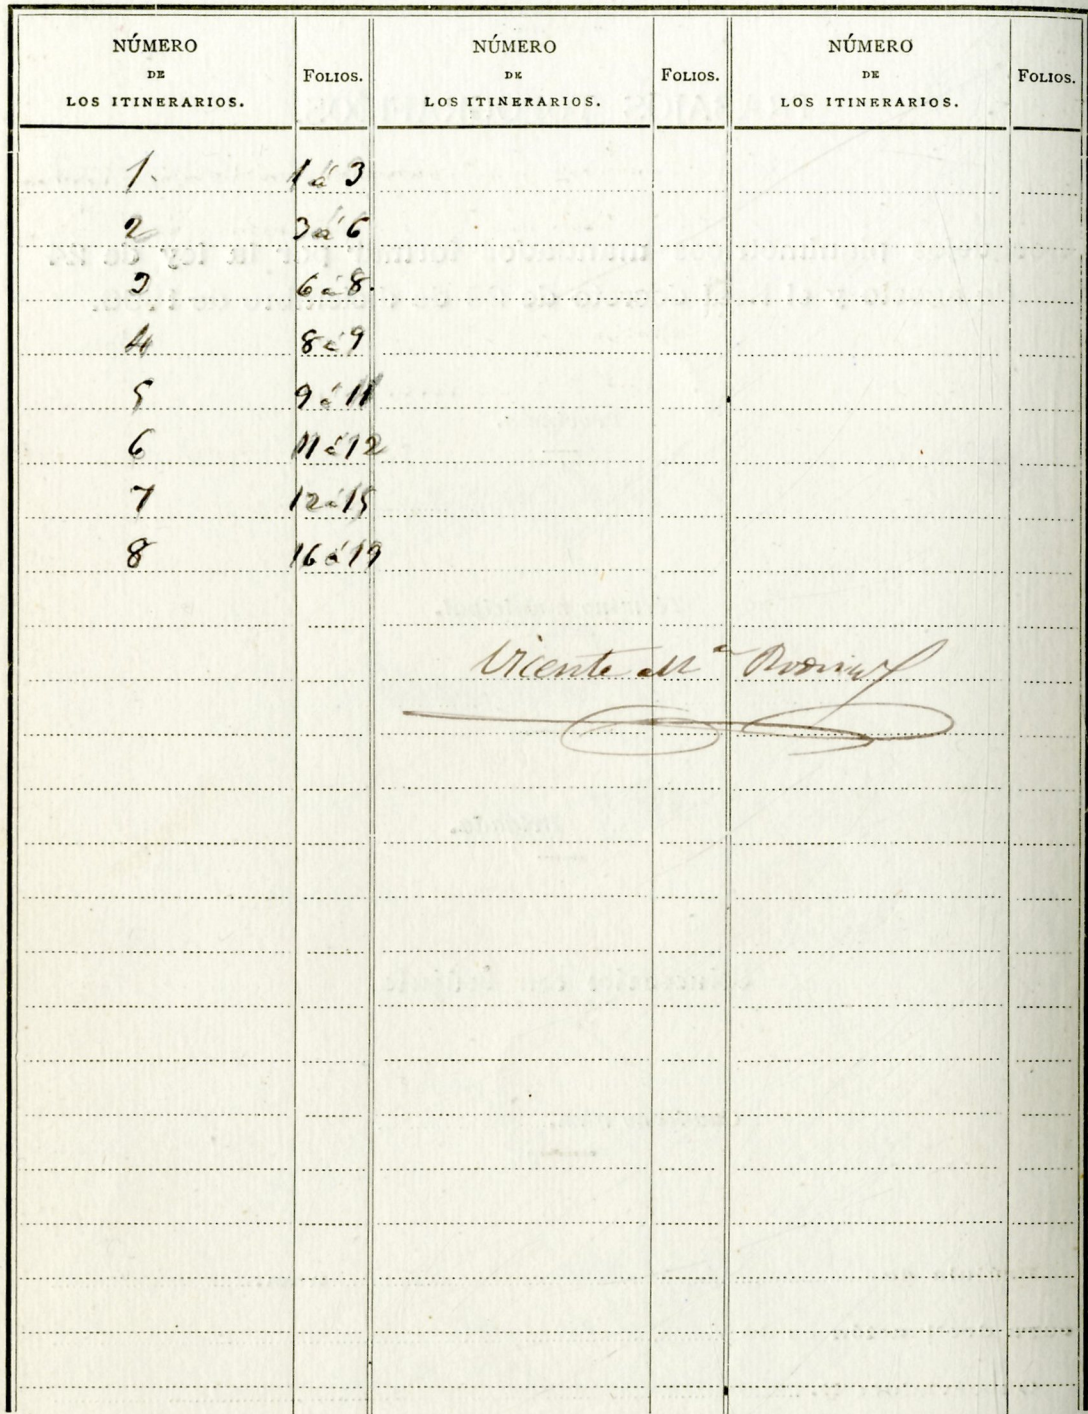 NÚMERO DE LOS ITINERARIOS. FOLIOS. NÚMERO DE LOS ITINERARIOS. FOLIOS. NÚMERO DE LOS ITINERARIOS. FOLIOS.
1 1 á 3
2 3 á 6
3 6 á 8
4 8 á 9
5 9 á 11
6 11 á 12
7 12 á 15
8 16 á 19
Vicente Mª